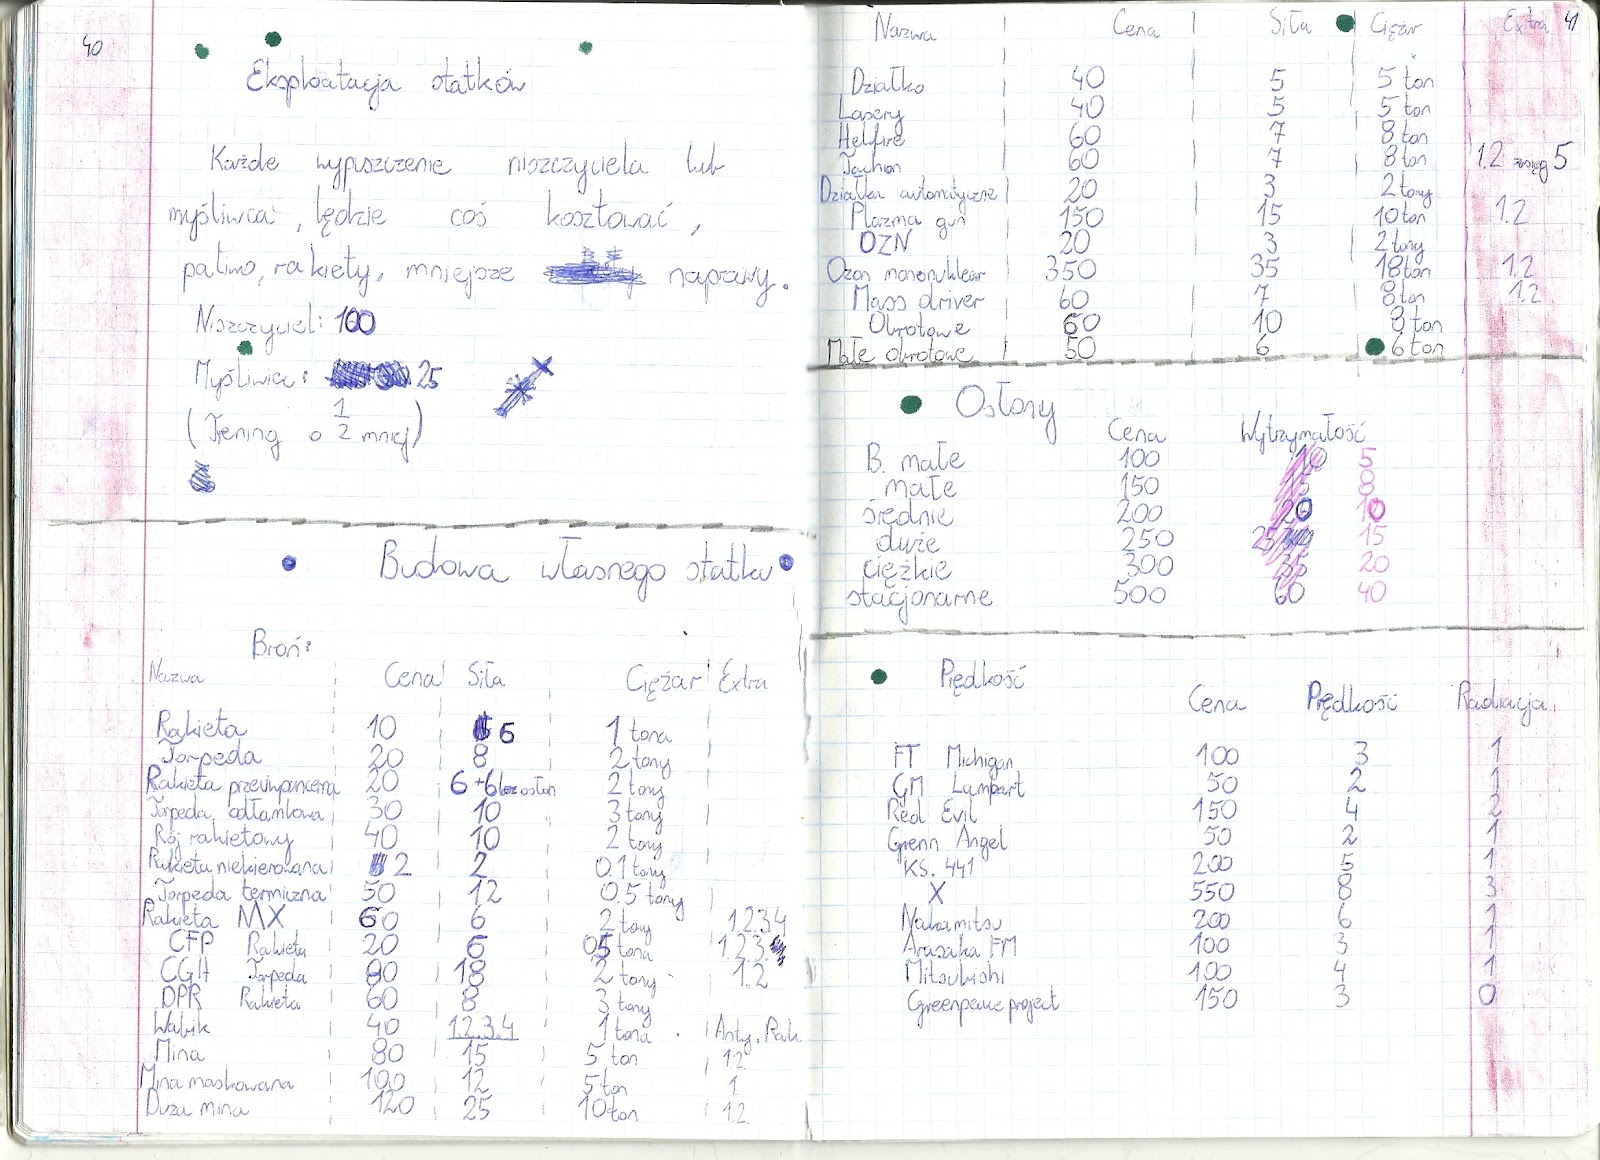 40
Eksploatacja statków
Każde wypuszczenie niszczyciela lub
myśliwca, będzie coś kosztować,
paliwo, rakiety, mniejsze naprawy.
Niszczyciel: 100
Myśliwia: 25
(Trening o 1/2 mniej)
Budowa własnego statku
Broń:
Nazwa Cena Siła Ciężar Extra
Rakieta 10 6 1 tona
Torpeda 20 8 2 tony
Rakieta przeciwpancerna 20 6 +6 bez osłon 2 tony
Torpeda odłamkowa 30 10 3 tony
Rój rakietowy 40 10 2 tony
Rakieta niekierowana 2 2 0.1 tony
Torpeda termiczna 50 12 0.5 tony
Rakieta MX 60 6 2 tony 1.2.3.4
CFP Rakieta 20 6 05 tona 1.2.3.
CGH Torpeda 80 18 2 tony 1.2
DPR Rakieta 60 8 3 tony
Wabik 40 1.2.3.4 1 tona Anty. Rak
Mina 80 15 5 ton 12
Mina maskowana 100 12 5 ton 1
Duza mina 120 25 10 ton 12
41
Nazwa Cena Siła Ciężar Extra
Działko 40 5 5 ton
Lasery 40 5 5 ton
Helfire 60 7 8 ton
Tachion 60 7 8 ton 1.2 zasięg 5
Działka automatyczne 20 3 2 tony
Plazma gun 150 15 10 ton 1.2
OZN 20 3 2 tony
Ozon mononuklear 350 35 18 ton 1.2
Mass driver 60 7 8 ton 1.2
Obrotowe 60 10 8 ton
Małe obrotowe 50 6 6 ton
Osłony
Cena Wytrzymałość
B. małe 100 10 5
małe 150 15 8
średnie 200 20 10
duże 250 25 15
ciężkie 300 35 20
stacjonarne 500 60 40
Prędkość
Cena Prędkość Radiacja
FT Michigan 100 3 1
GM Lampart 50 2 1
Red Evil 150 4 2
Grenn Angel 50 2 1
KS. 441 200 5 1
X 550 8 3
Nakamitsu 200 6 1
Arasaka FM 100 3 1
Mitsubishi 100 4 1
Greenpeace projekt 150 3 0